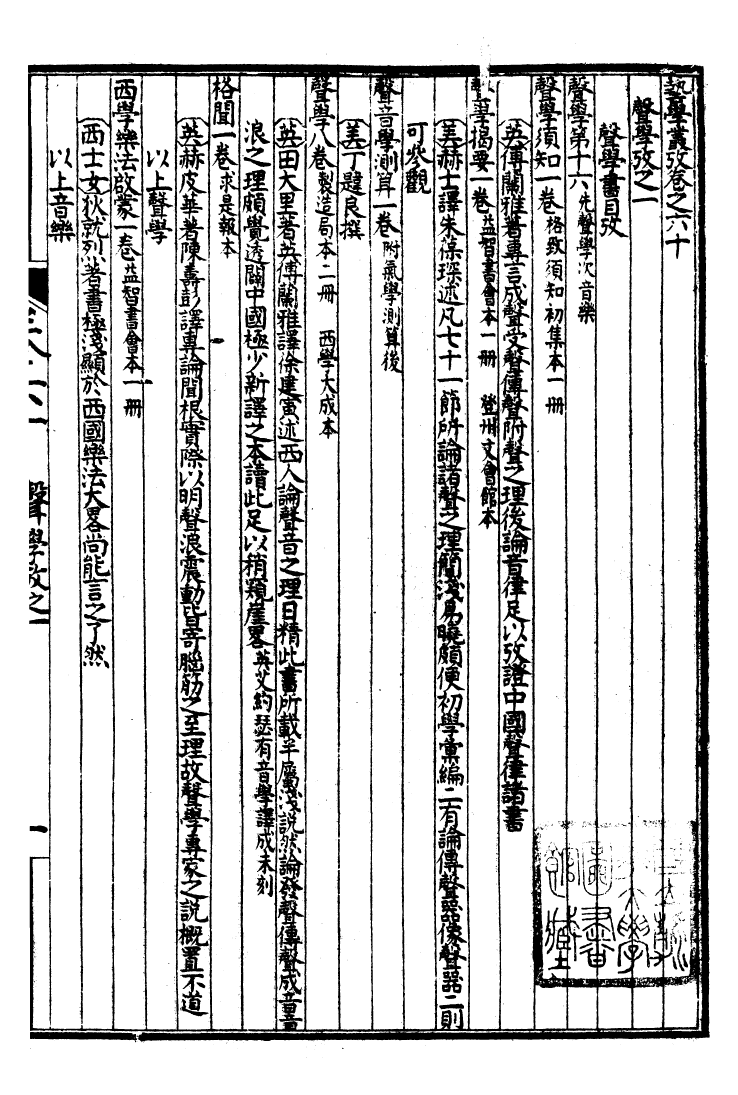 藝學叢攷卷之六十
聲學攷之一
聲學書目攷
聲學第十六先聲學次音樂
聲學須知一卷格致須知初集本一册
英傅蘭雅著專言成聲受聲傳聲附聲之理後論音律足以攷證中國聲律諸書
聲學揭要一卷益智書會本一册 登州文會館本
美赫士譯朱葆琛述凡七十一節所論諸聲之理簡淺易曉頗便初學彙編二有論傳聲器像聲器二則
可參觀
聲音學測算一卷附氣學測算後
美丁韙良撰
聲學八卷製造局本二册 西學大成本
英田大里著英傅蘭雅譯徐建寅述西人論聲音之理日精此書所載半屬淺說然論發聲傳聲成音音
浪之理頗覺透闢中國極少新譯之本讀此足以稍窺崖畧英艾約瑟有音學譯成未刻
格聞一卷求是報本
英赫皮華著陳壽彭譯專論聞根實際以明聲浪震動皆寄腦筋之至理故聲學專家之說概置不道
以上聲學
西學樂法啟蒙一卷益智書會本一册
西士女狄就烈著書極淺顯於西國樂法大畧尚能言之了然
以上音樂
聲學攷之一
一